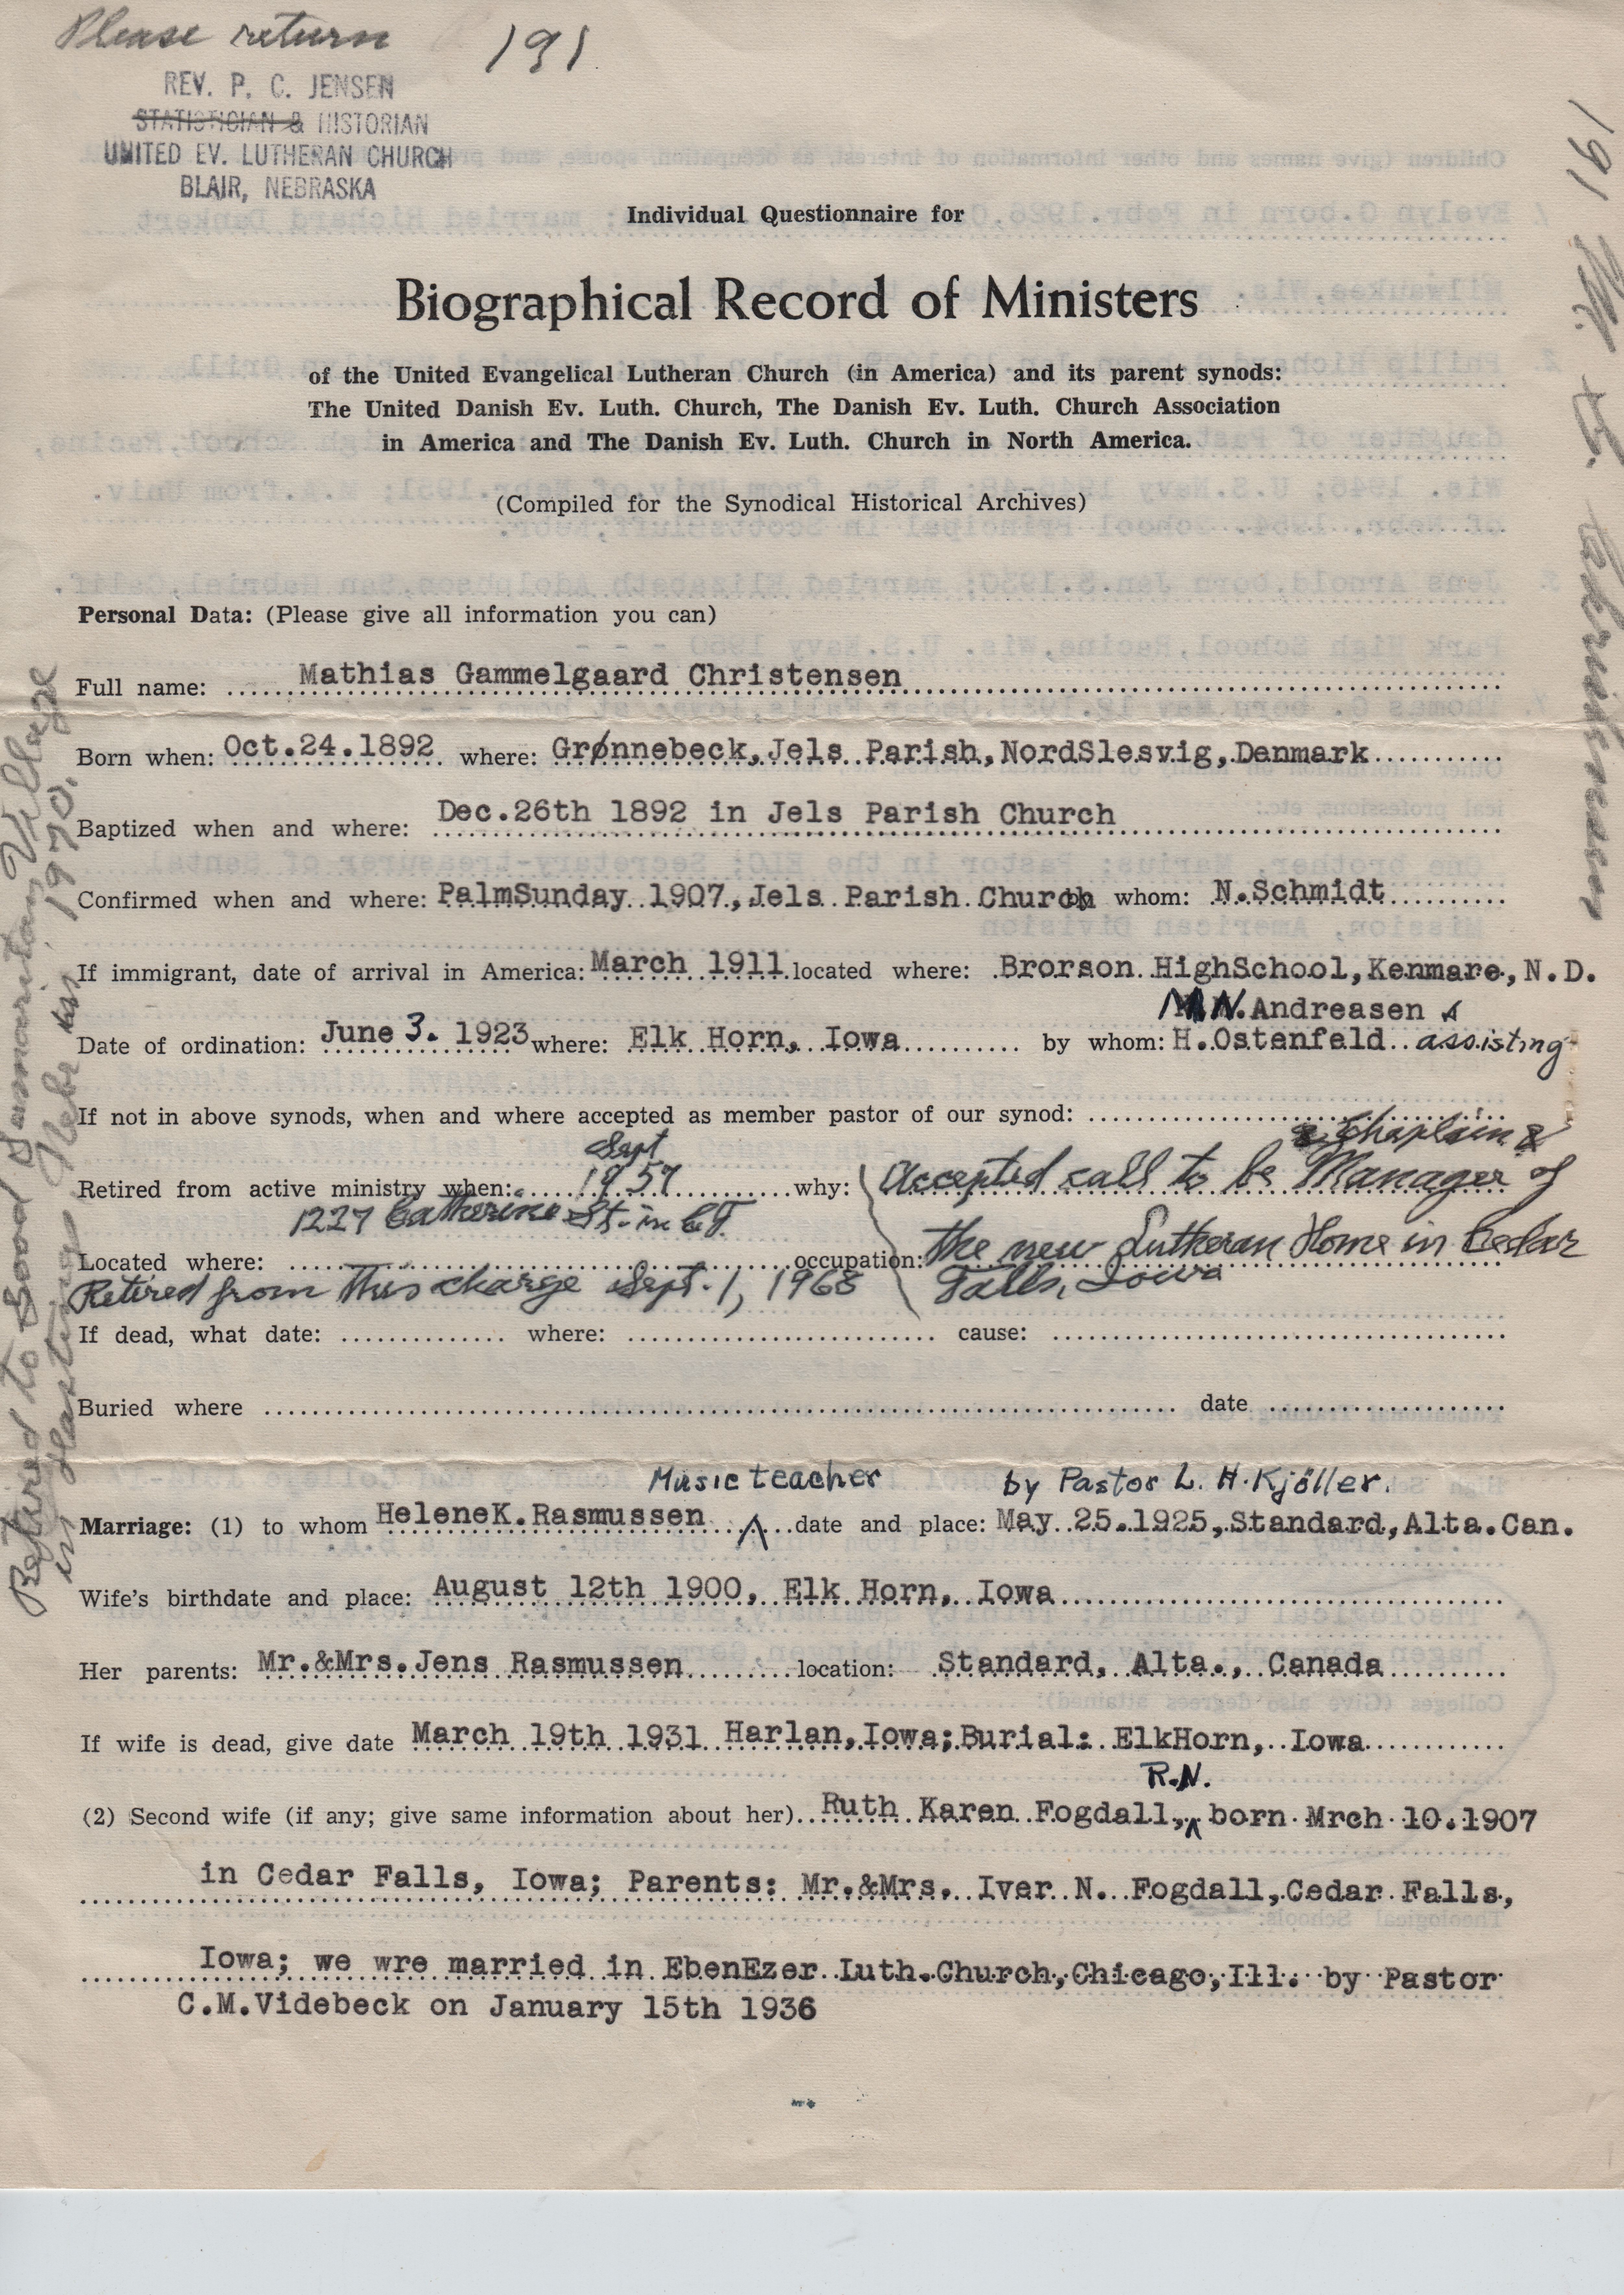 Please return 191
REV. P. C. JENSEN
STATISTICIAN & HISTORIAN
UNITED EV. LUTHERAN CHURCH
BLAIR, NEBRASKA
Individual Questionnaire for
Biographical Record of Ministers
of the United Evangelical Lutheran Church (in America) and its parent synods:
The United Danish Ev. Luth. Church, The Danish Ev. Luth. Church Association
in America and The Danish Ev. Luth. Church in North America.
(Compiled for the Synodical Historical Archives)
Personal Data: (Please give all information you can)
Full name: Mathias Gammelgaard Christensen
Born when: Oct.24.1892 where: Grønnebeck, Jels Parish, NordSlesvig, Denmark
Baptized when and where: Dec.26th 1892 in Jels Parish Church
Confirmed when and where: PalmSunday 1907, Jels Parish Church by whom: N.Schmidt
If immigrant, date of arrival in America: March 1911 located where: Brorson HighSchool, Kenmare, N.D.
N. Andreasen
Date of ordination: June 3. 1923 where: Elk Horn, Iowa by whom: H.Ostenfeld assisting
If not in above synods, when and where accepted as member pastor of our synod:
Sept chaplain &
Retired from active ministry when: 1957 why: Accepted call to be Manager of
1227 Catherine St. in C.F.
Located where: occupation: the new Lutheran Home in Cedar
Retired from this charge Sept. 1, 1968 Falls, Iowa
If dead, what date: where: cause:
Buried where date
Music teacher by Pastor L. H. Kjöller.
Marriage: (1) to whom HeleneK.Rasmussen date and place: May 25.1925, Standard, Alta. Can.
Wife's birthdate and place: August 12th 1900, Elk Horn, Iowa
Her parents: Mr.&Mrs.Jens Rasmussen location: Standard, Alta., Canada
If wife is dead, give date March 19th 1931 Harlan, Iowa; Burial: ElkHorn, Iowa
R.N.
(2) Second wife (if any; give same information about her) Ruth Karen Fogdall, born Mrch 10.1907
in Cedar Falls, Iowa; Parents: Mr.&Mrs. Iver N. Fogdall, Cedar Falls,
Iowa; we wre married in EbenEzer Luth.Church, Chicago, Ill. by Pastor
C.M.Videbeck on January 15th 1936
Retired to Good Samaritan Village
in Hastings Nebr 1970.
191 M. G. Christensen